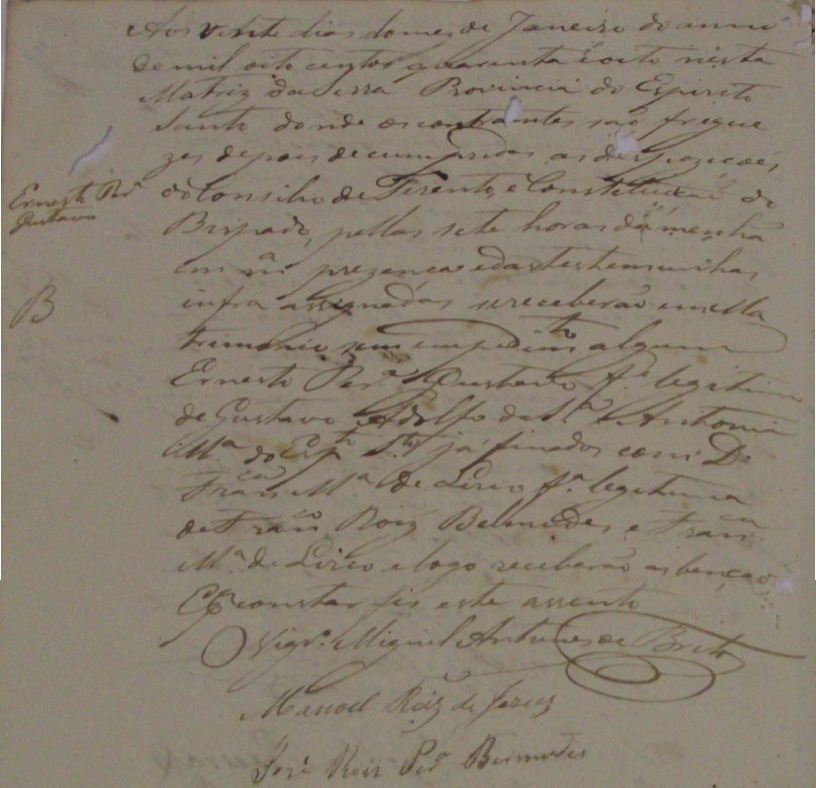 Aos vinte dias do mes de Janeiro do anno
de mil oito centos quarenta e oito nesta
Matriz da Serra Provincia do Espirito
Santo donde os contrahentes são fregue
zes depois de cumpridas as despoziçoes
do Consilio de Terento, e Constituição do
Ernesto Per.ª
Gustavo
Bispado, pellas sete horas da menhã
em m.ª prezença e das testemunhas
B
infra assignadas se receberão em Ma
trimonio sem empedim.to algum
Ernesto Per.ª Gustavo f.º legitimo
de Gustavo Adolfo da S.ª e Antonia
M.ª do Esp.to S.to já finados com D.
Fran.ca M.ª de Lirio f.ª legitima
de Fran.co Roiz Belmudes, e Fran.ca
M.ª de Lirio e logo receberão as bençaos
E p.ª constar fis este assento
O Vigr.º Miguel Antunes de Brito
Manoel Roiz de Jesus
José Roiz Per.ª Bermudes